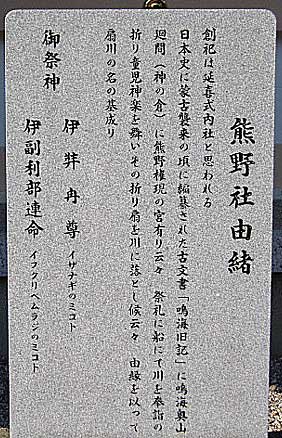 熊野社由緒
創祀は延喜式内社と思われる
日本史に蒙古襲来の頃に編纂された古文書「鳴海旧記」に鳴海奥山
廻間（神の倉）に熊野権現の宮有り云々 祭礼に船にて川を奉詣の
折り童児神楽を舞いその折り扇を川に落とし候云々 由縁を以って
扇川の名の基成り
御祭神
伊弉冉尊 イザナギのミコト
伊副利部連命 イフクリベムラジのミコト